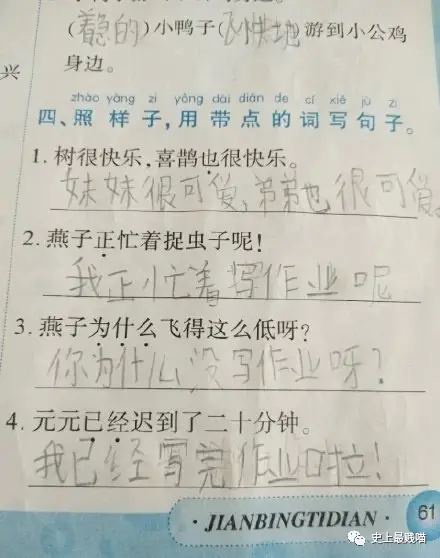 (着急的)小鸭子(飞快地)游到小公鸡
身边。
兴
zhào yàng zi yòng dài diǎn de cí xiě jù zi
四、照样子,用带点的词写句子。
1. 树很快乐,喜鹊也很快乐。
妹妹很可爱,弟弟也很可爱。
2. 燕子正忙着捉虫子呢!
我正忙着写作业呢
3. 燕子为什么飞得这么低呀?
你为什么没写作业呀?
4. 元元已经迟到了二十分钟。
我已经写完作业啦!
· JIANBINGTIDIAN · 61
史上最贱喵